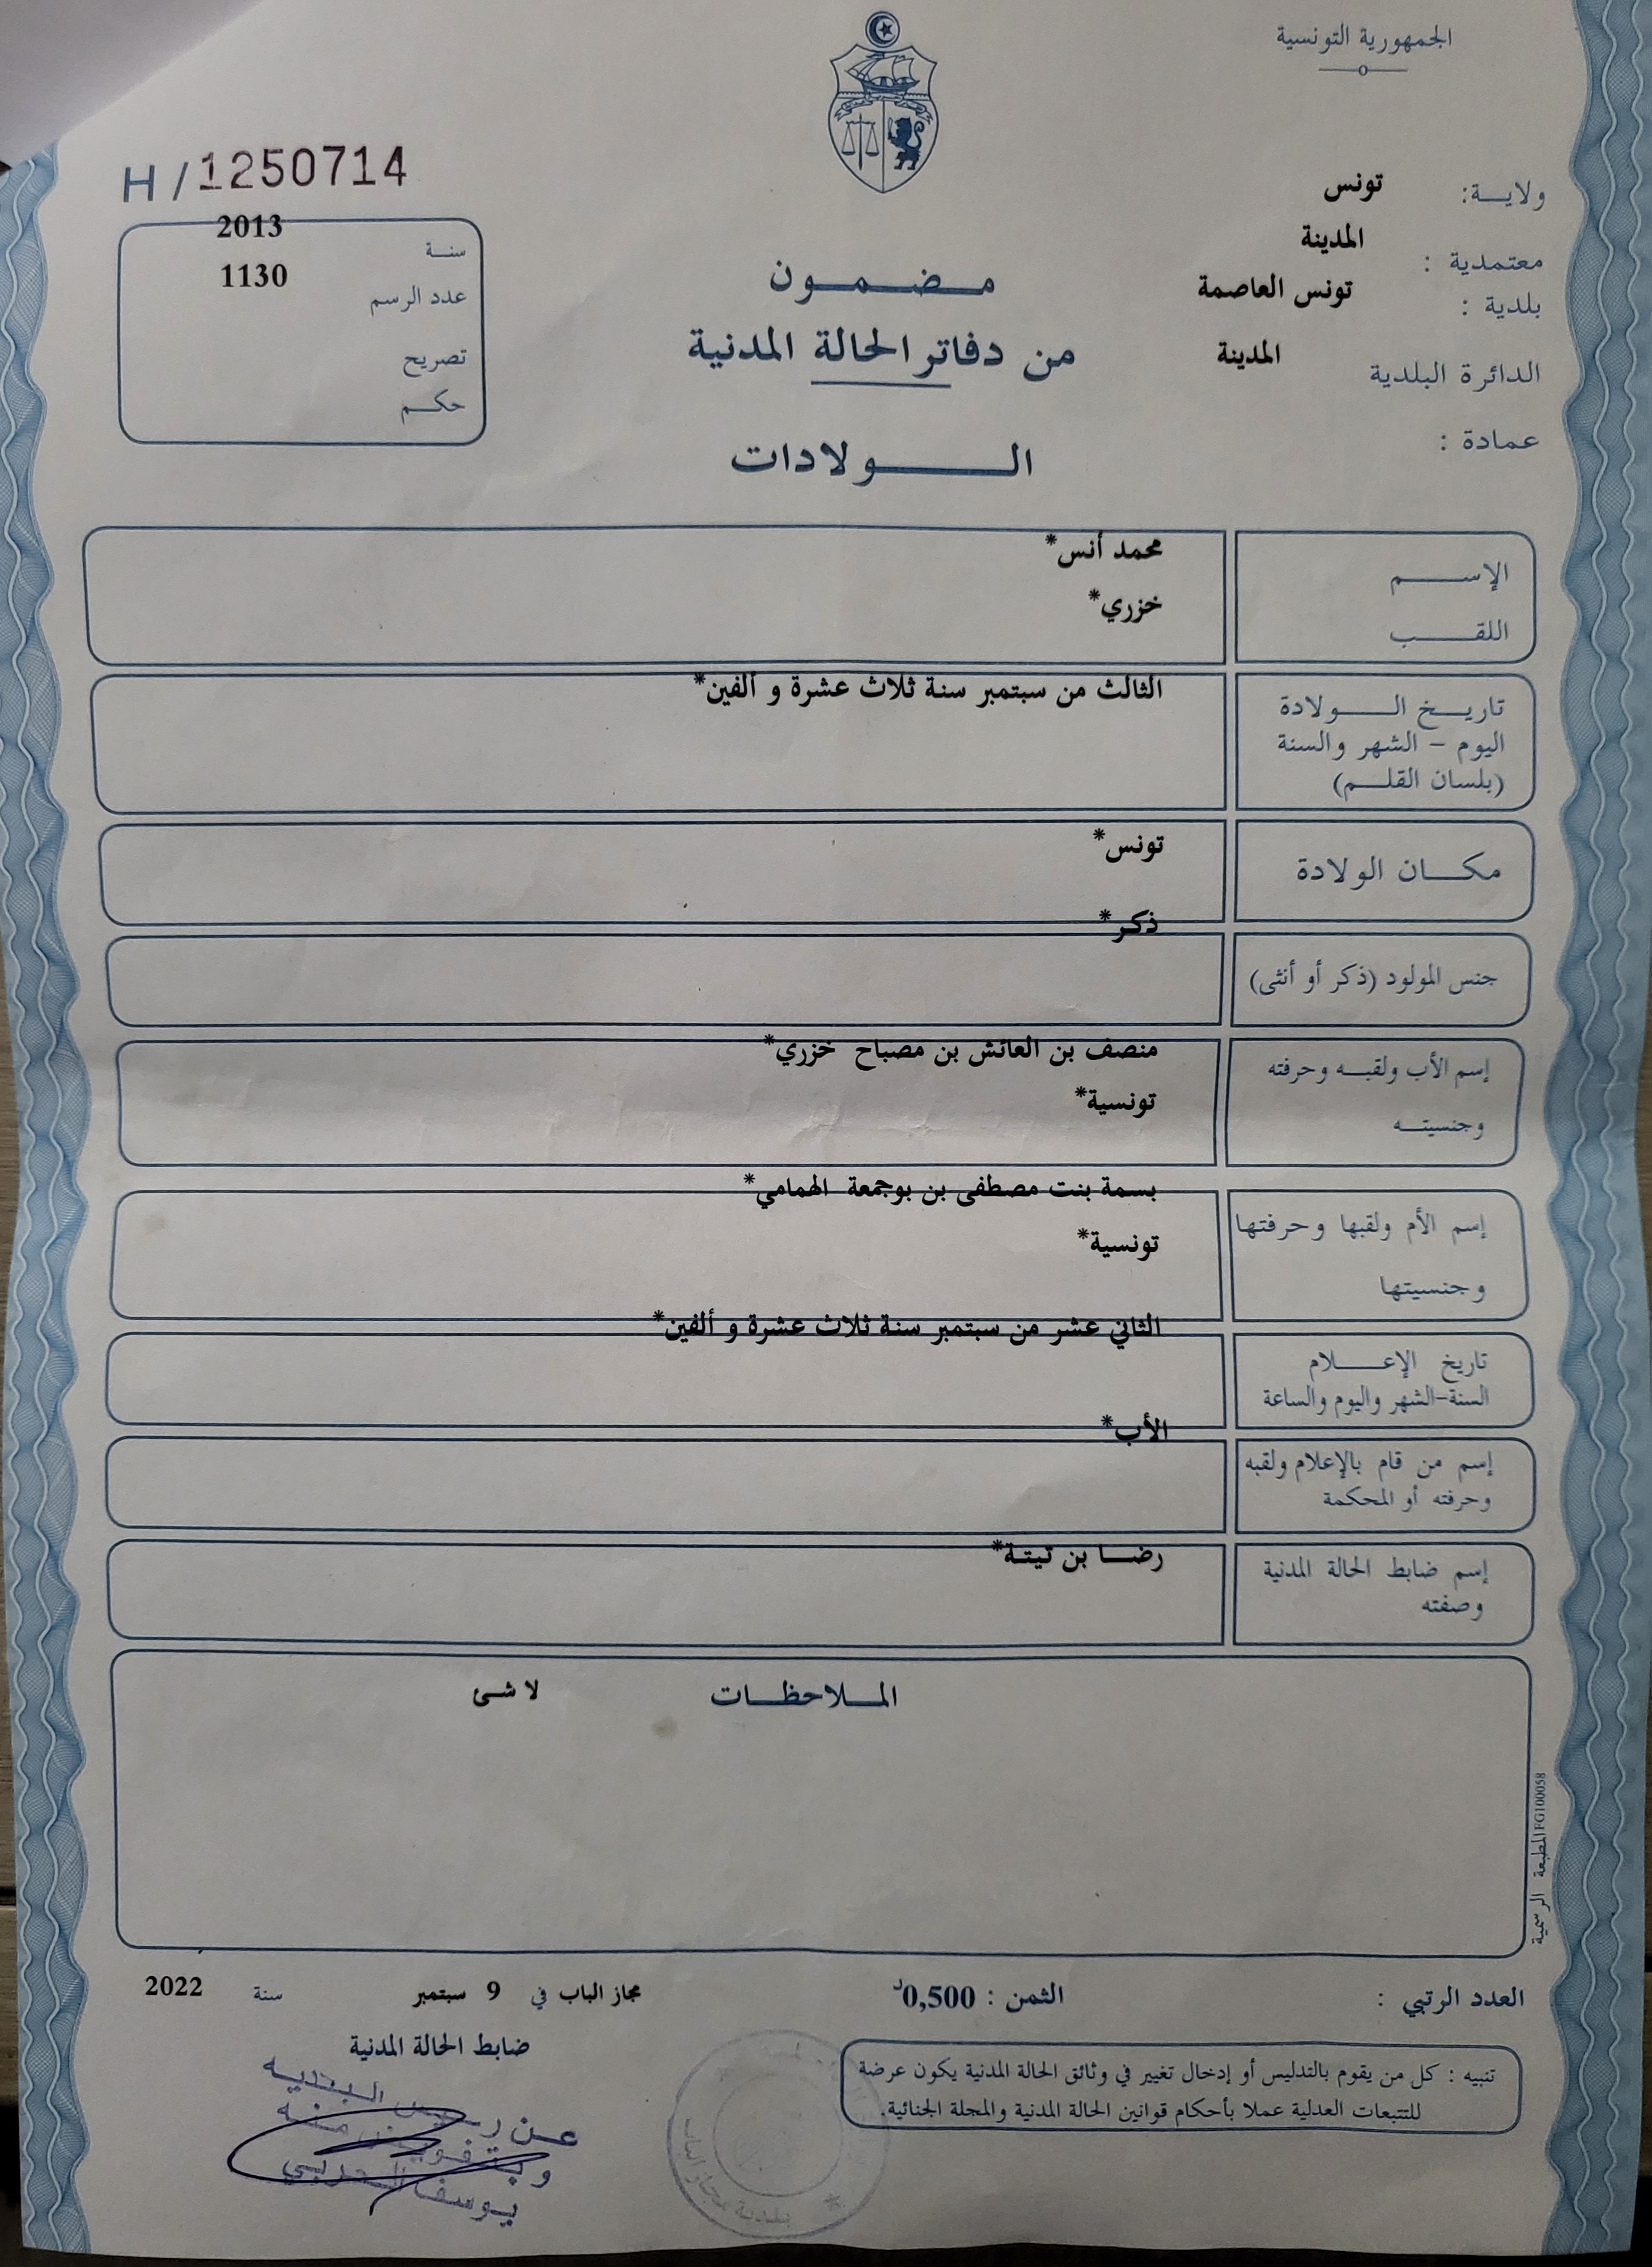 الجمهورية التونسية
H / 1250714
ولايــة: تونس
معتمدية : المدينة
بلدية : تونس العاصمة
الدائرة البلدية المدينة
عمادة :
سنــة 2013
عدد الرسم 1130
تصريح
حكــم
مـضـمـون
من دفاتر الحالة المدنية
الـــولادات
الإســـم محمد أنس*
اللقـــب خزري*
تاريـخ الـــولادة الثالث من سبتمبر سنة ثلاث عشرة و ألفين*
اليوم – الشهر والسنة
(بلسان القلــم)
مكــان الولادة تونس*
جنس المولود (ذكر أو أنثى) ذكر*
إسم الأب ولقبــه وحرفته منصف بن العائش بن مصباح خزري*
وجنسيتــه تونسية*
إسم الأم ولقبها وحرفتها بسمة بنت مصطفى بن بوجمعة الهمامي*
وجنسيتها تونسية*
تاريخ الإعــــلام الثاني عشر من سبتمبر سنة ثلاث عشرة و ألفين*
السنة-الشهر واليوم والساعة
إسم من قام بالإعلام ولقبه الأب*
وحرفته أو المحكمة
إسم ضابط الحالة المدنية رضــا بن تيتة*
وصفته
المــلاحظــات لا شئ
المطبعة الرسمية FG100058
العدد الرتبي :
الثمن : 0,500د
مجاز الباب في 9 سبتمبر سنة 2022
ضابط الحالة المدنية
تنبيه : كل من يقوم بالتدليس أو إدخال تغيير في وثائق الحالة المدنية يكون عرضة
للتتبعات العدلية عملا بأحكام قوانين الحالة المدنية والمجلة الجنائية.
عـن رئيس البلدية
وبتفويض منه
يوسف
بلدية مجاز الباب